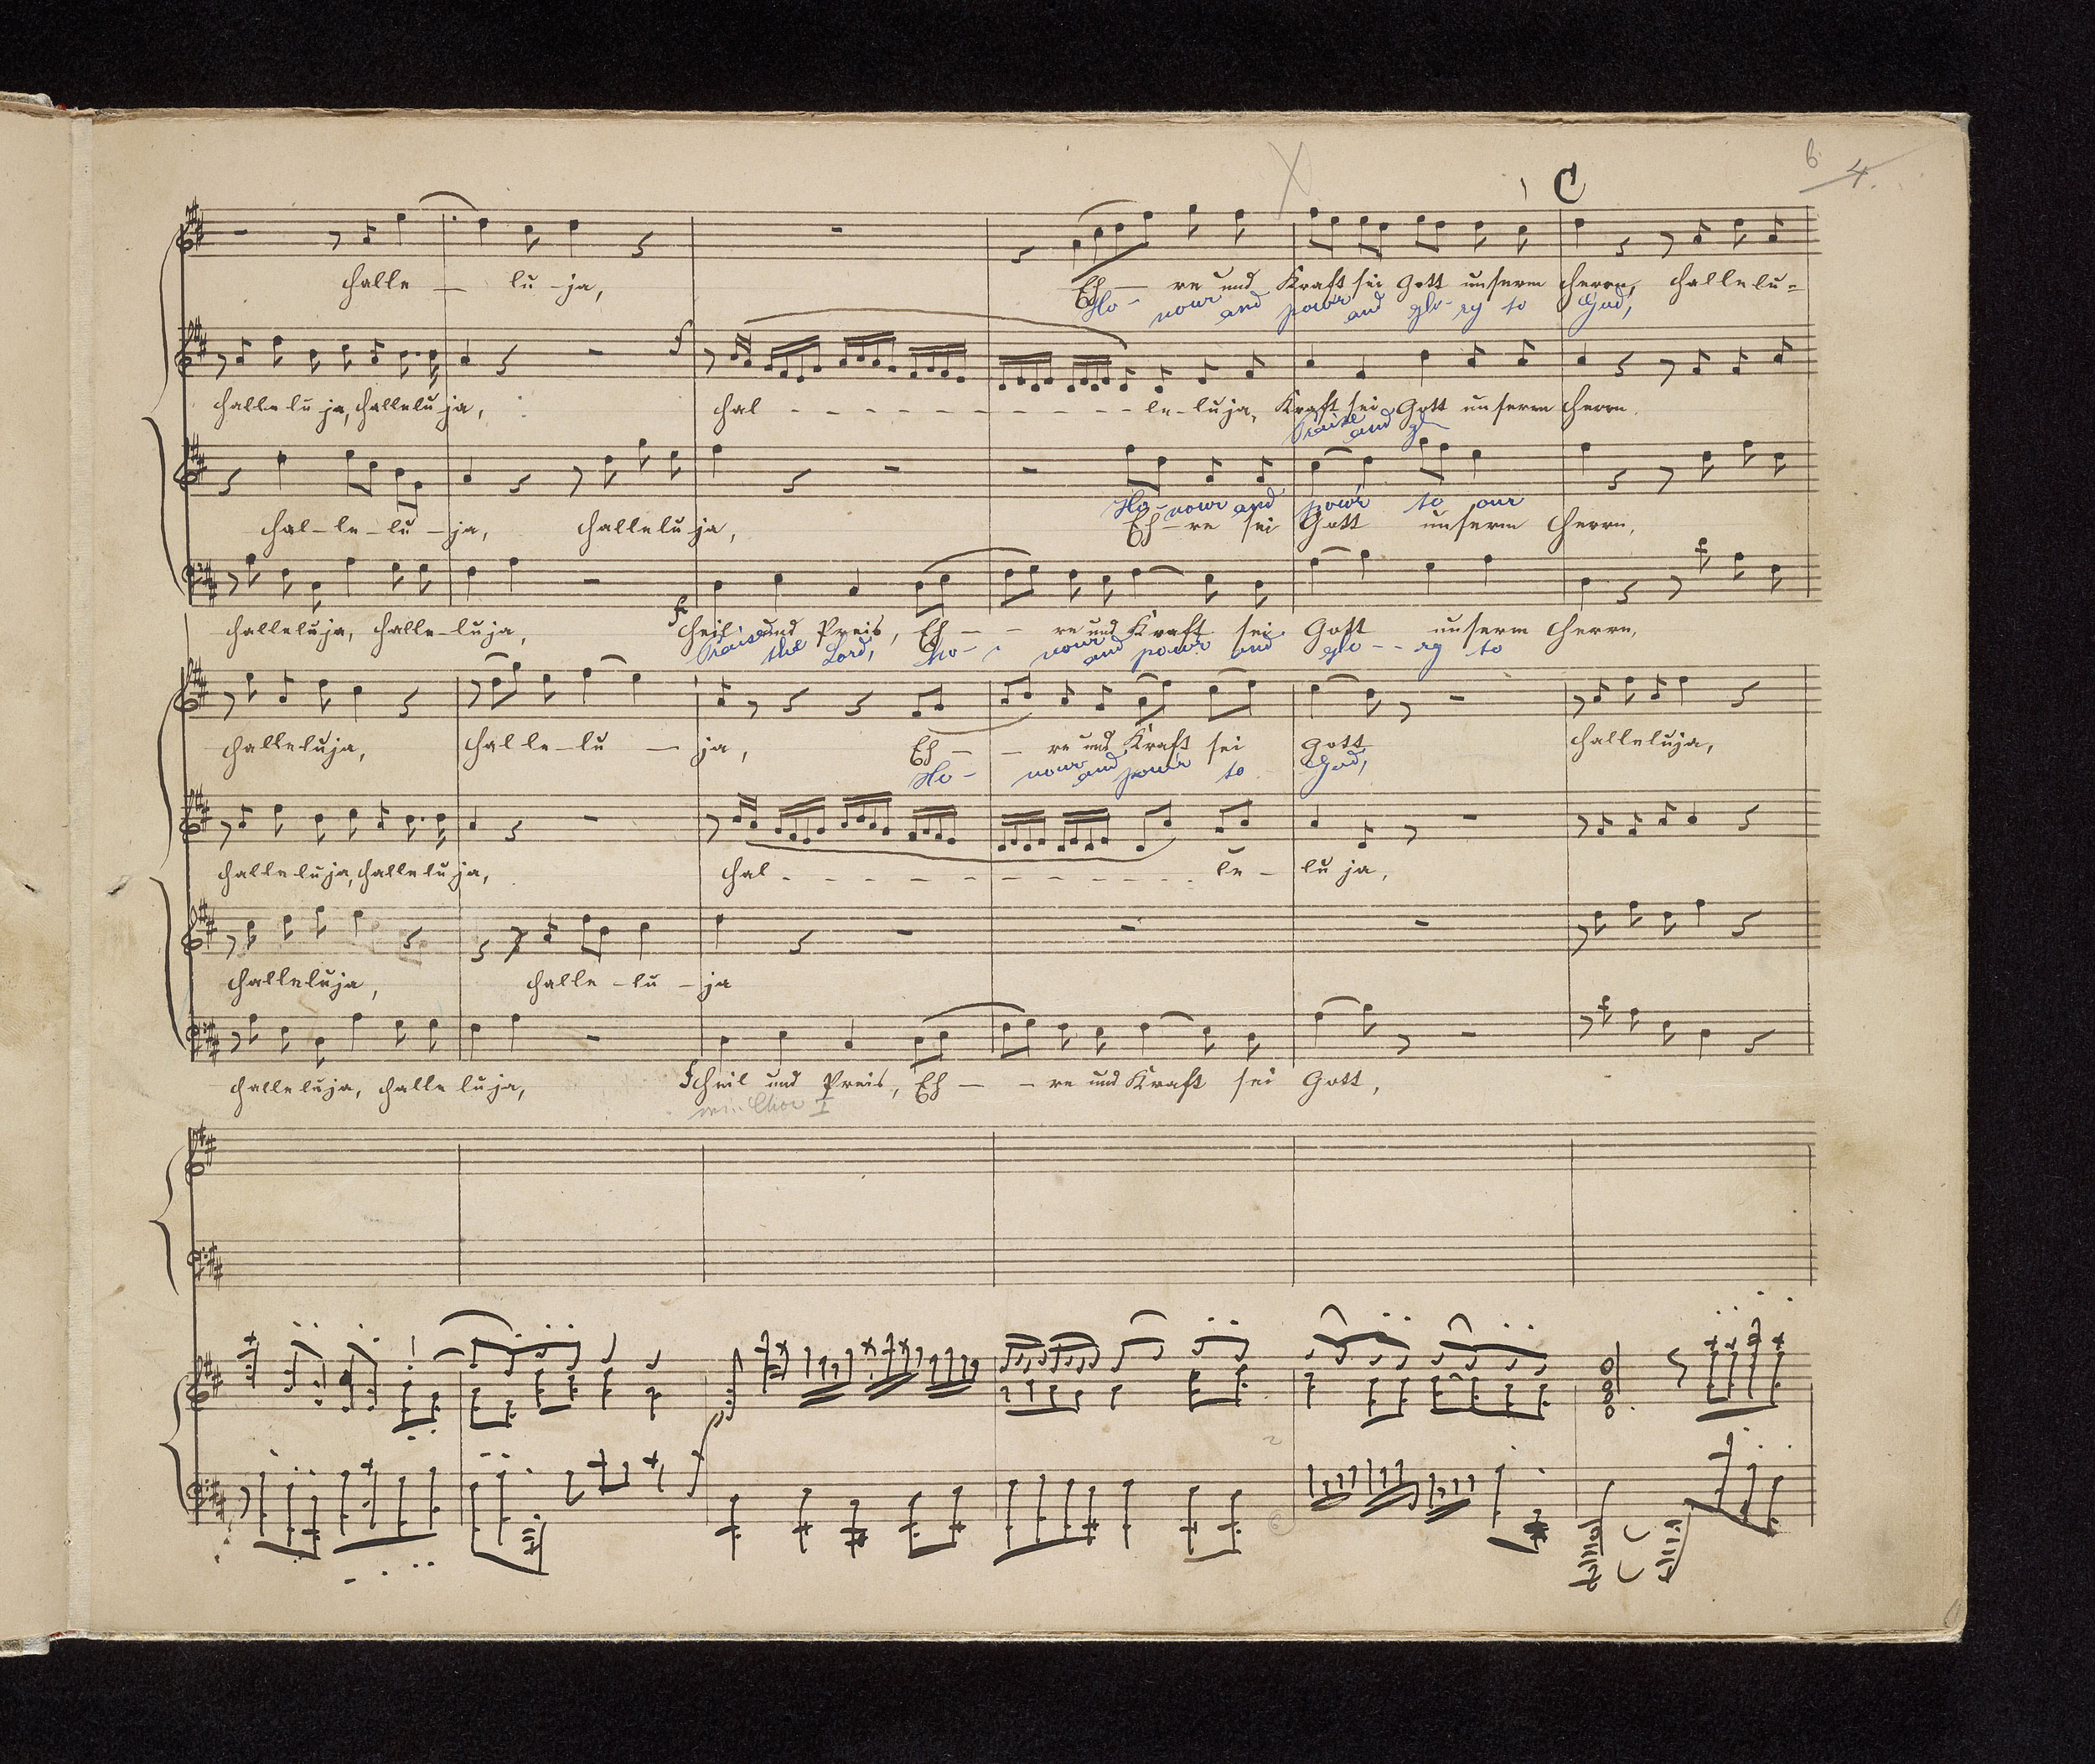 6 4.
C
Halle — lu-ja, Eh — re und Kraft sei Gott unserm Herrn, Hallelu=
Ho- nour and pow'r and glo-ry to God,
f
Halleluja, Halleluja, Hal - - - - - - - - - - - le-luja, Kraft sei Gott unserm Herrn.
Praise and gl
Ho-nour and pow'r to our
Hal-le-lu-ja, Halleluja, Eh-re sei Gott unserm Herrn,
Halleluja, Halle-luja, f Heil und Preis, Eh — - re und Kraft sei Gott unserm Herrn,
Praise the Lord, Ho- - nour and pow'r and glo-- ry to
Halleluja, Halle-lu — ja, Eh — - re und Kraft sei Gott Halleluja,
Ho- nour and pow'r to God,
Halleluja, Halleluja, Hal - - - - - - - - - - - le - lu ja,
Halleluja, Halle-lu-ja
Halleluja, Halle luja, f Heil und Preis, Eh — - re und Kraft sei Gott,
Chor I